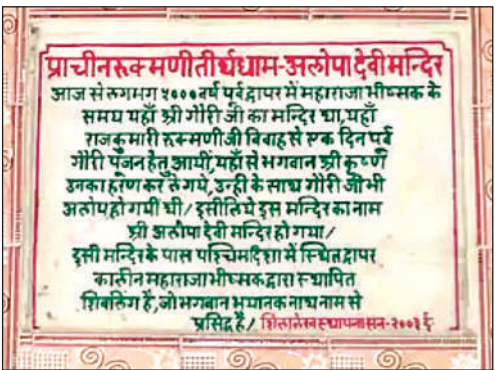 प्राचीन रुक्मणी तीर्थधाम-अलोपा देवी मन्दिर
आज से लगभग ५००० वर्ष पूर्व द्वापर में महाराजा भीष्मक के
समय यहाँ श्री गौरी जी का मन्दिर था, यहाँ
राजकुमारी रुक्मणी जी विवाह से एक दिन पूर्व
गौरी पूजन हेतु आयी, यहाँ से भगवान श्री कृष्ण
उनका हरण कर ले गये, उन्ही के साथ गौरी जी भी
अलोप हो गयीं थी/ इसीलिये इस मन्दिर का नाम
श्री अलोपा देवी मन्दिर हो गया/
इसी मन्दिर के पास पश्चिम दिशा में स्थित द्वापर
कालीन महाराजा भीष्मक द्वारा स्थापित
शिवलिंग है, जो भगवान भयानक नाथ नाम से
प्रसिद्ध है/ शिलालेख स्थापना सन-२००३ ई